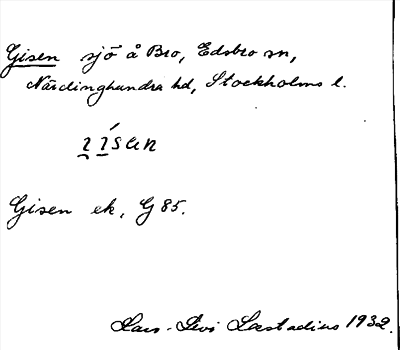 Gisen sjö å Bro, Edsbro sn,
Närdinghundra hd, Stockholms l.
Gisen ek, G 85.
Lars-Levi Læstadius 1932.